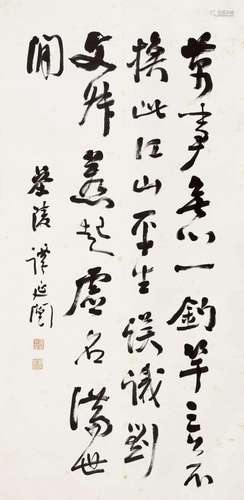 萬事無心一釣竿三公不
換此江山平生誤識劉
文叔惹起虛名滿世
間
茶陵譚延闓